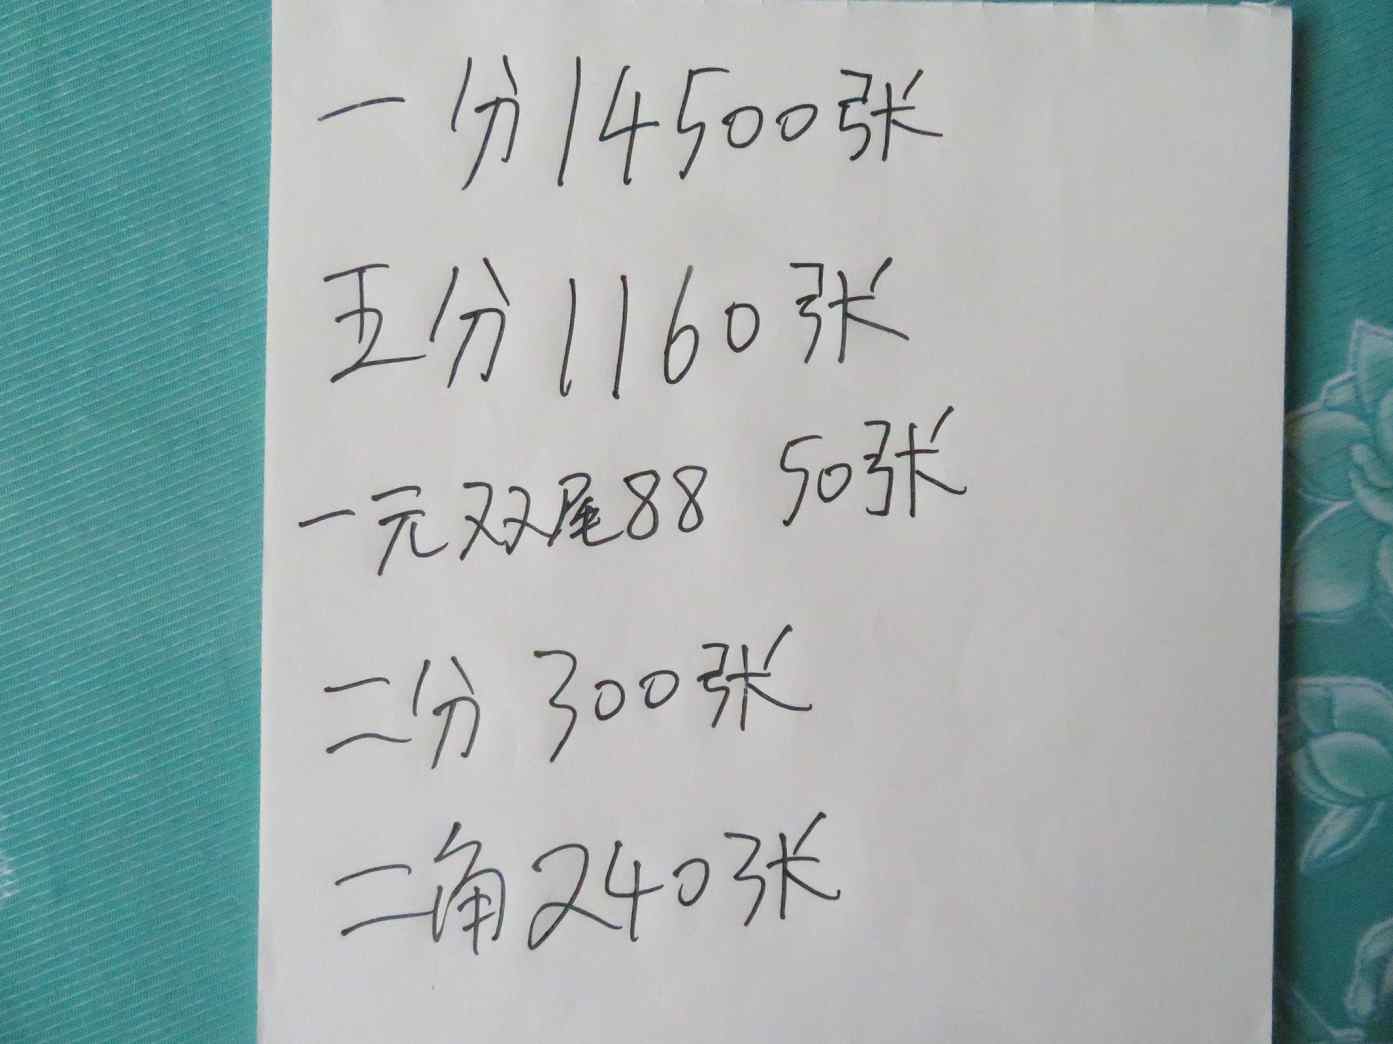 一分14500张
五分1160张
一元双尾88 50张
二分 300张
二角240张